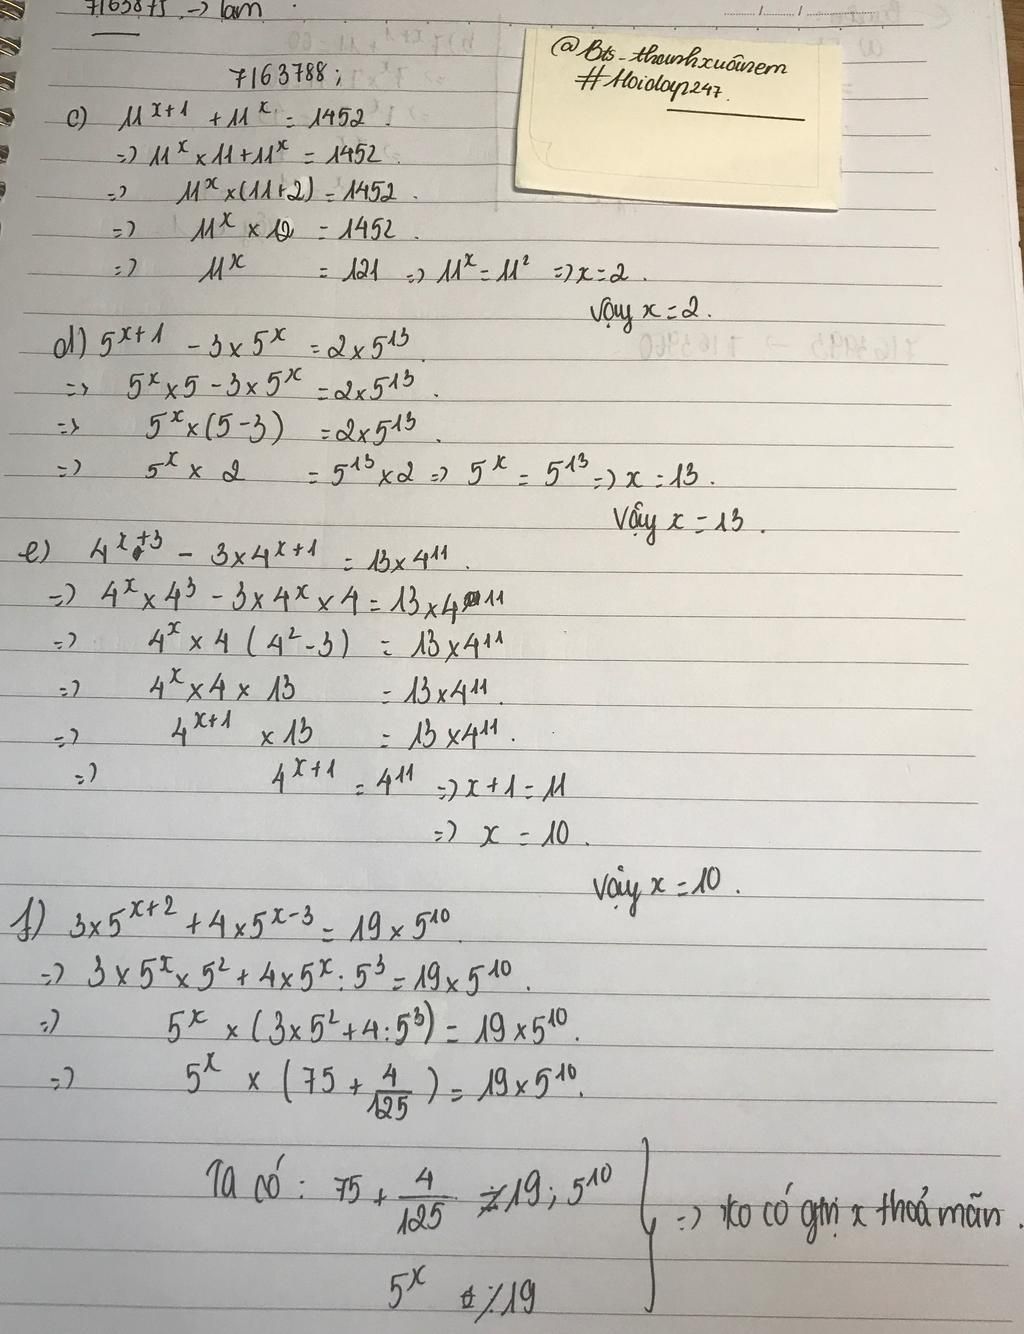 7163875 → làm
@Bts_thanhxuânem
#Hoidap247.
7163788;
c) 11^{x+1} + 11^x = 1452.
=> 11^x × 11 + 11^x = 1452.
=> 11^x × (11+2) = 1452.
=> 11^x × 12 = 1452.
=> 11^x = 121 => 11^x = 11^2 => x = 2.
Vậy x = 2.
d) 5^{x+1} - 3 × 5^x = 2 × 5^{13}.
=> 5^x × 5 - 3 × 5^x = 2 × 5^{13}.
=> 5^x × (5-3) = 2 × 5^{13}.
=> 5^x × 2 = 5^{13} × 2 => 5^x = 5^{13} => x = 13.
Vậy x = 13.
e) 4^{x+3} - 3 × 4^{x+1} = 13 × 4^{11}.
=> 4^x × 4^3 - 3 × 4^x × 4 = 13 × 4^{11}
=> 4^x × 4 (4^2 - 3) = 13 × 4^{11}
=> 4^x × 4 × 13 = 13 × 4^{11}.
=> 4^{x+1} × 13 = 13 × 4^{11}.
=> 4^{x+1} = 4^{11} => x + 1 = 11
=> x = 10.
Vậy x = 10.
f) 3 × 5^{x+2} + 4 × 5^{x-3} = 19 × 5^{10}.
=> 3 × 5^x × 5^2 + 4 × 5^x : 5^3 = 19 × 5^{10}.
=> 5^x × (3 × 5^2 + 4 : 5^3) = 19 × 5^{10}.
=> 5^x × (75 + 4/125) = 19 × 5^{10}.
Ta có : 75 + 4/125 ⋮̸ 19 ; 5^{10}
=> ko có gtrị x thoả mãn.
5^x ⋮̸ 19